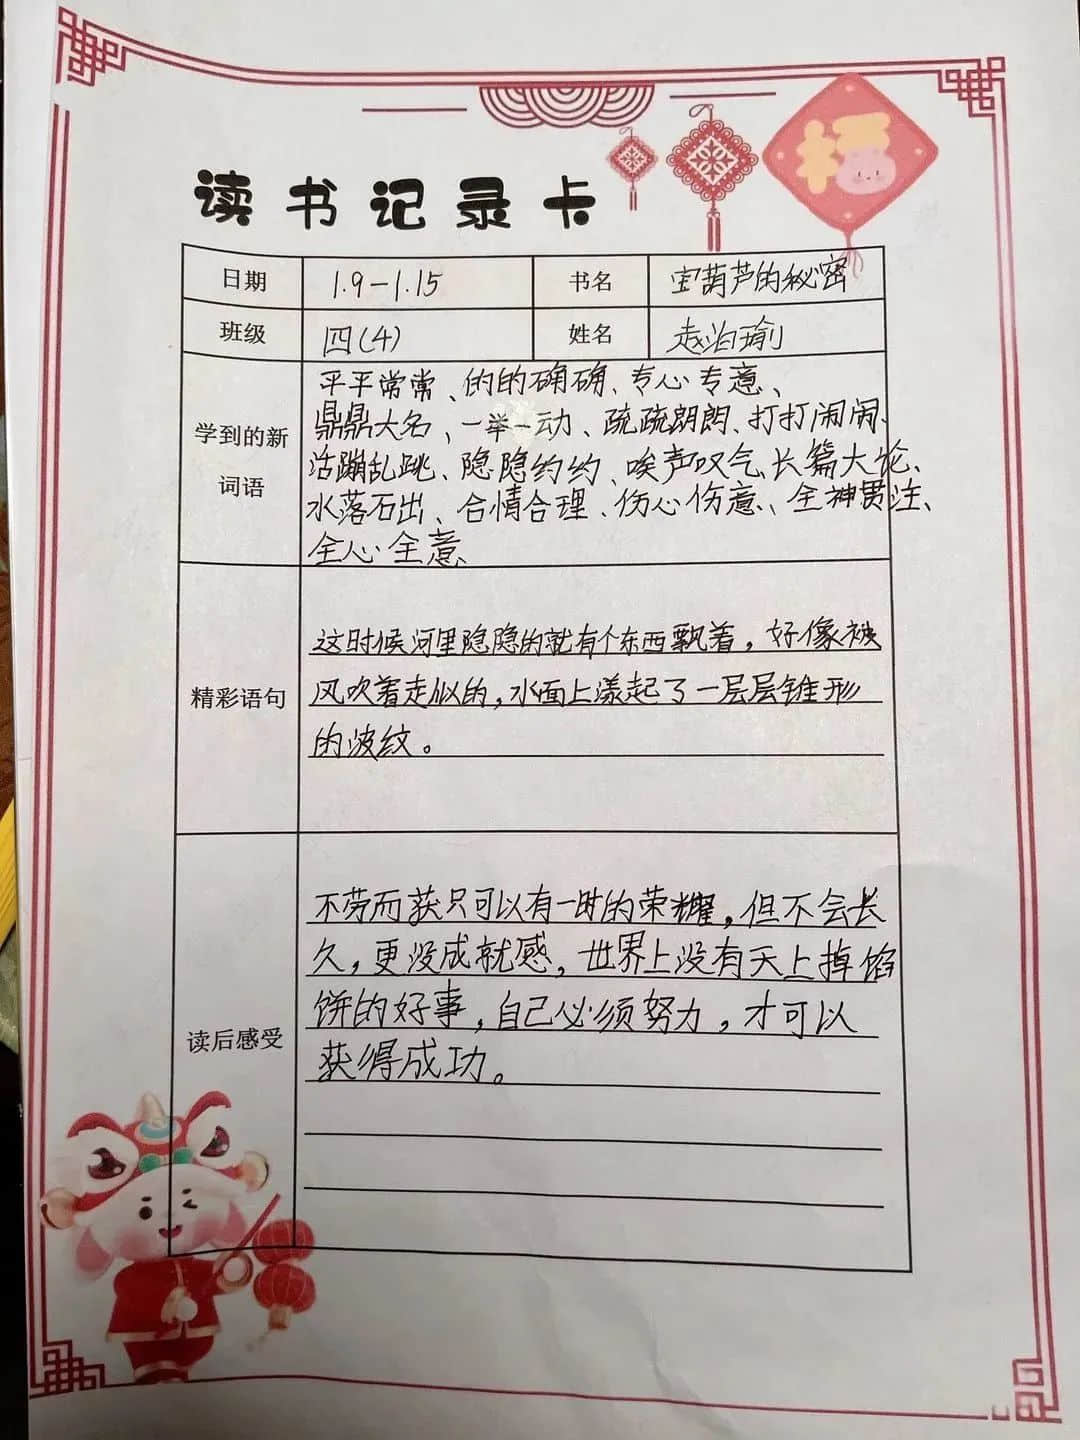 福
读书记录卡
日期 1.9-1.15 书名 宝葫芦的秘密
班级 四(4) 姓名 赵泊瑜
学到的新词语
平平常常、的的确确、专心专意、
鼎鼎大名、一举一动、疏疏朗朗、打打闹闹、
活蹦乱跳、隐隐约约、唉声叹气、长篇大论、
水落石出、合情合理、伤心伤意、全神贯注、
全心全意、
精彩语句
这时候河里隐隐的就有个东西飘着，好像被
风吹着走似的，水面上漾起了一层层锥形
的波纹。
读后感受
不劳而获只可以有一时的荣耀，但不会长
久，更没成就感，世界上没有天上掉馅
饼的好事，自己必须努力，才可以
获得成功。